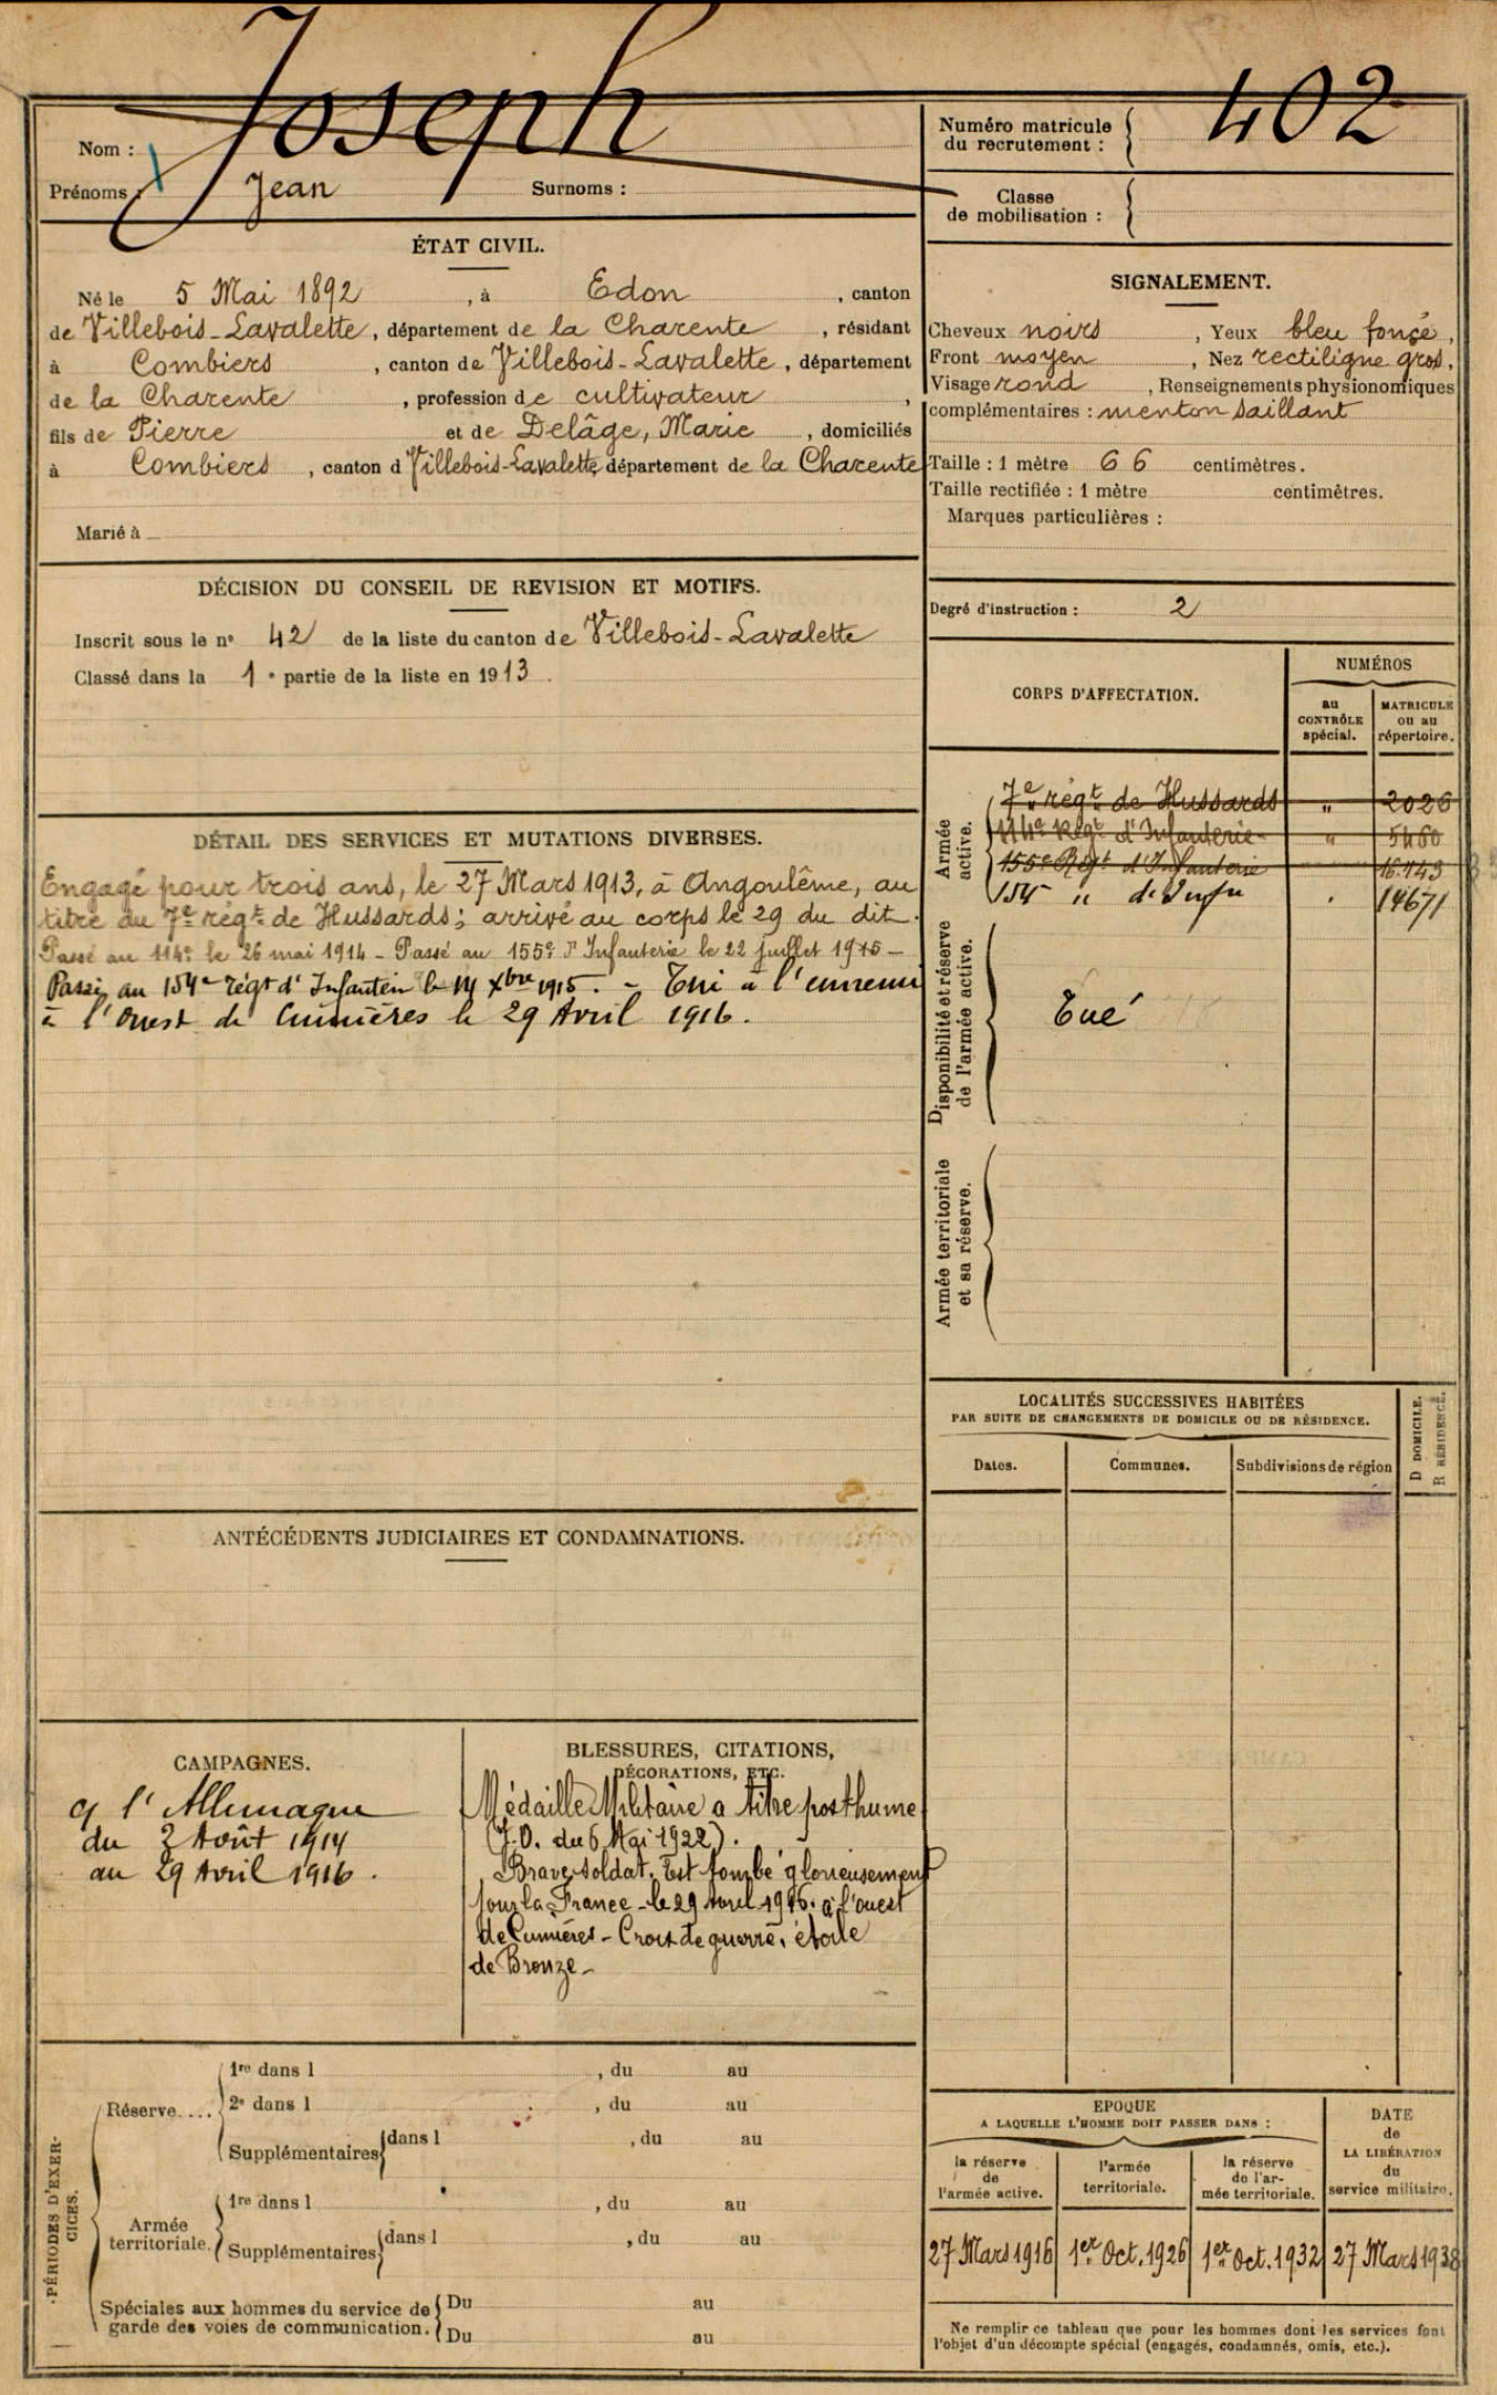 Joseph
Nom :
Prénoms : Jean Surnoms :
Numéro matricule
du recrutement : 402
Classe
de mobilisation :
ÉTAT CIVIL.
Né le 5 Mai 1892, à Edon, canton
de Villebois-Lavalette, département de la Charente, résidant
à Combiers, canton de Villebois-Lavalette, département
de la Charente, profession de cultivateur,
fils de Pierre et de Delâge, Marie, domiciliés
à Combiers, canton d Villebois-Lavalette, département de la Charente
Marié à
SIGNALEMENT.
Cheveux noirs, Yeux bleu foncé,
Front moyen, Nez rectiligne gros,
Visage rond, Renseignements physionomiques
complémentaires : menton saillant
Taille : 1 mètre 66 centimètres.
Taille rectifiée : 1 mètre centimètres.
Marques particulières :
DÉCISION DU CONSEIL DE REVISION ET MOTIFS.
Inscrit sous le n° 42 de la liste du canton de Villebois-Lavalette
Classé dans la 1e partie de la liste en 1913.
Degré d'instruction : 2
CORPS D'AFFECTATION.
NUMÉROS
au
CONTRÔLE
spécial.
MATRICULE
ou au
répertoire.
Armée
active.
7e régt de Hussards " 2026
114e Régt d'Infanterie " 5460
155e Régt d'Infanterie 16.143
154 " d'Infie " 14671
Disponibilité et réserve
de l'armée active.
Tué
Armée territoriale
et sa réserve.
DÉTAIL DES SERVICES ET MUTATIONS DIVERSES.
Engagé pour trois ans, le 27 Mars 1913, à Angoulême, au
titre du 7e régt de Hussards; arrivé au corps le 29 du dit.
Passé au 114e le 26 mai 1914 - Passé au 155e d'Infanterie le 22 juillet 1915 -
Passé au 154e régt d'Infanterie le 14 Xbre 1915. - Tué à l'ennemi
à l'Ouest de Cumières le 29 Avril 1916.
LOCALITÉS SUCCESSIVES HABITÉES
PAR SUITE DE CHANGEMENTS DE DOMICILE OU DE RÉSIDENCE.
D DOMICILE.
R RÉSIDENCE.
Dates. Communes. Subdivisions de région
ANTÉCÉDENTS JUDICIAIRES ET CONDAMNATIONS.
CAMPAGNES.
c/ l'Allemagne
du 2 Août 1914
au 29 Avril 1916.
BLESSURES, CITATIONS,
DÉCORATIONS, ETC.
Médaille Militaire a titre posthume
(J.O. du 6 Mai 1922).
Brave soldat. Est tombé glorieusement
pour la France - le 29 Avril 1916. à l'ouest
de Cumières - Croix de guerre, étoile
de Bronze -
PÉRIODES D'EXER-
CICES.
Réserve....
1re dans l , du au
2e dans l , du au
Supplémentaires dans l , du au
Armée
territoriale.
1re dans l , du au
Supplémentaires dans l , du au
Spéciales aux hommes du service de
garde des voies de communication.
Du au
Du au
EPOQUE
A LAQUELLE L'HOMME DOIT PASSER DANS :
la réserve
de
l'armée active.
l'armée
territoriale.
la réserve
de l'ar-
mée territoriale.
DATE
de
LA LIBÉRATION
du
service militaire.
27 Mars 1916 1er Oct. 1926 1er Oct. 1932 27 Mars 1938
Ne remplir ce tableau que pour les hommes dont les services font
l'objet d'un décompte spécial (engagés, condamnés, omis, etc.).